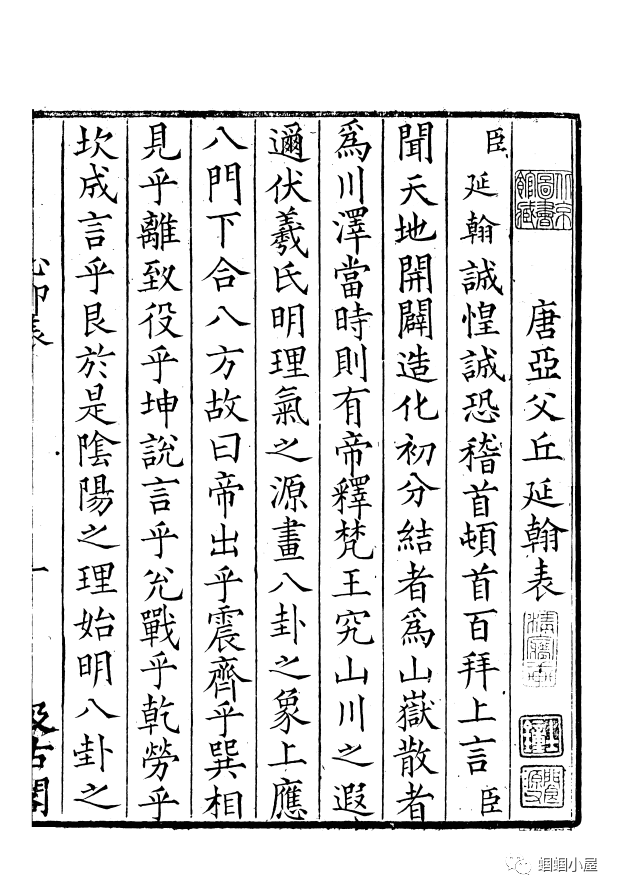 唐亞父丘延翰表
臣延翰誠惶誠恐稽首頓首百拜上言臣
聞天地開闢造化初分結者爲山嶽散者
爲川澤當時則有帝釋梵王究山川之遐
邇伏羲氏明理氣之源畫八卦之象上應
八門下合八方故曰帝出乎震齊乎巽相
見乎離致役乎坤說言乎兊戰乎乾勞乎
坎成言乎艮於是陰陽之理始明八卦之
心印表
一
汲古閣
北京圖書館藏
蝈蝈小屋